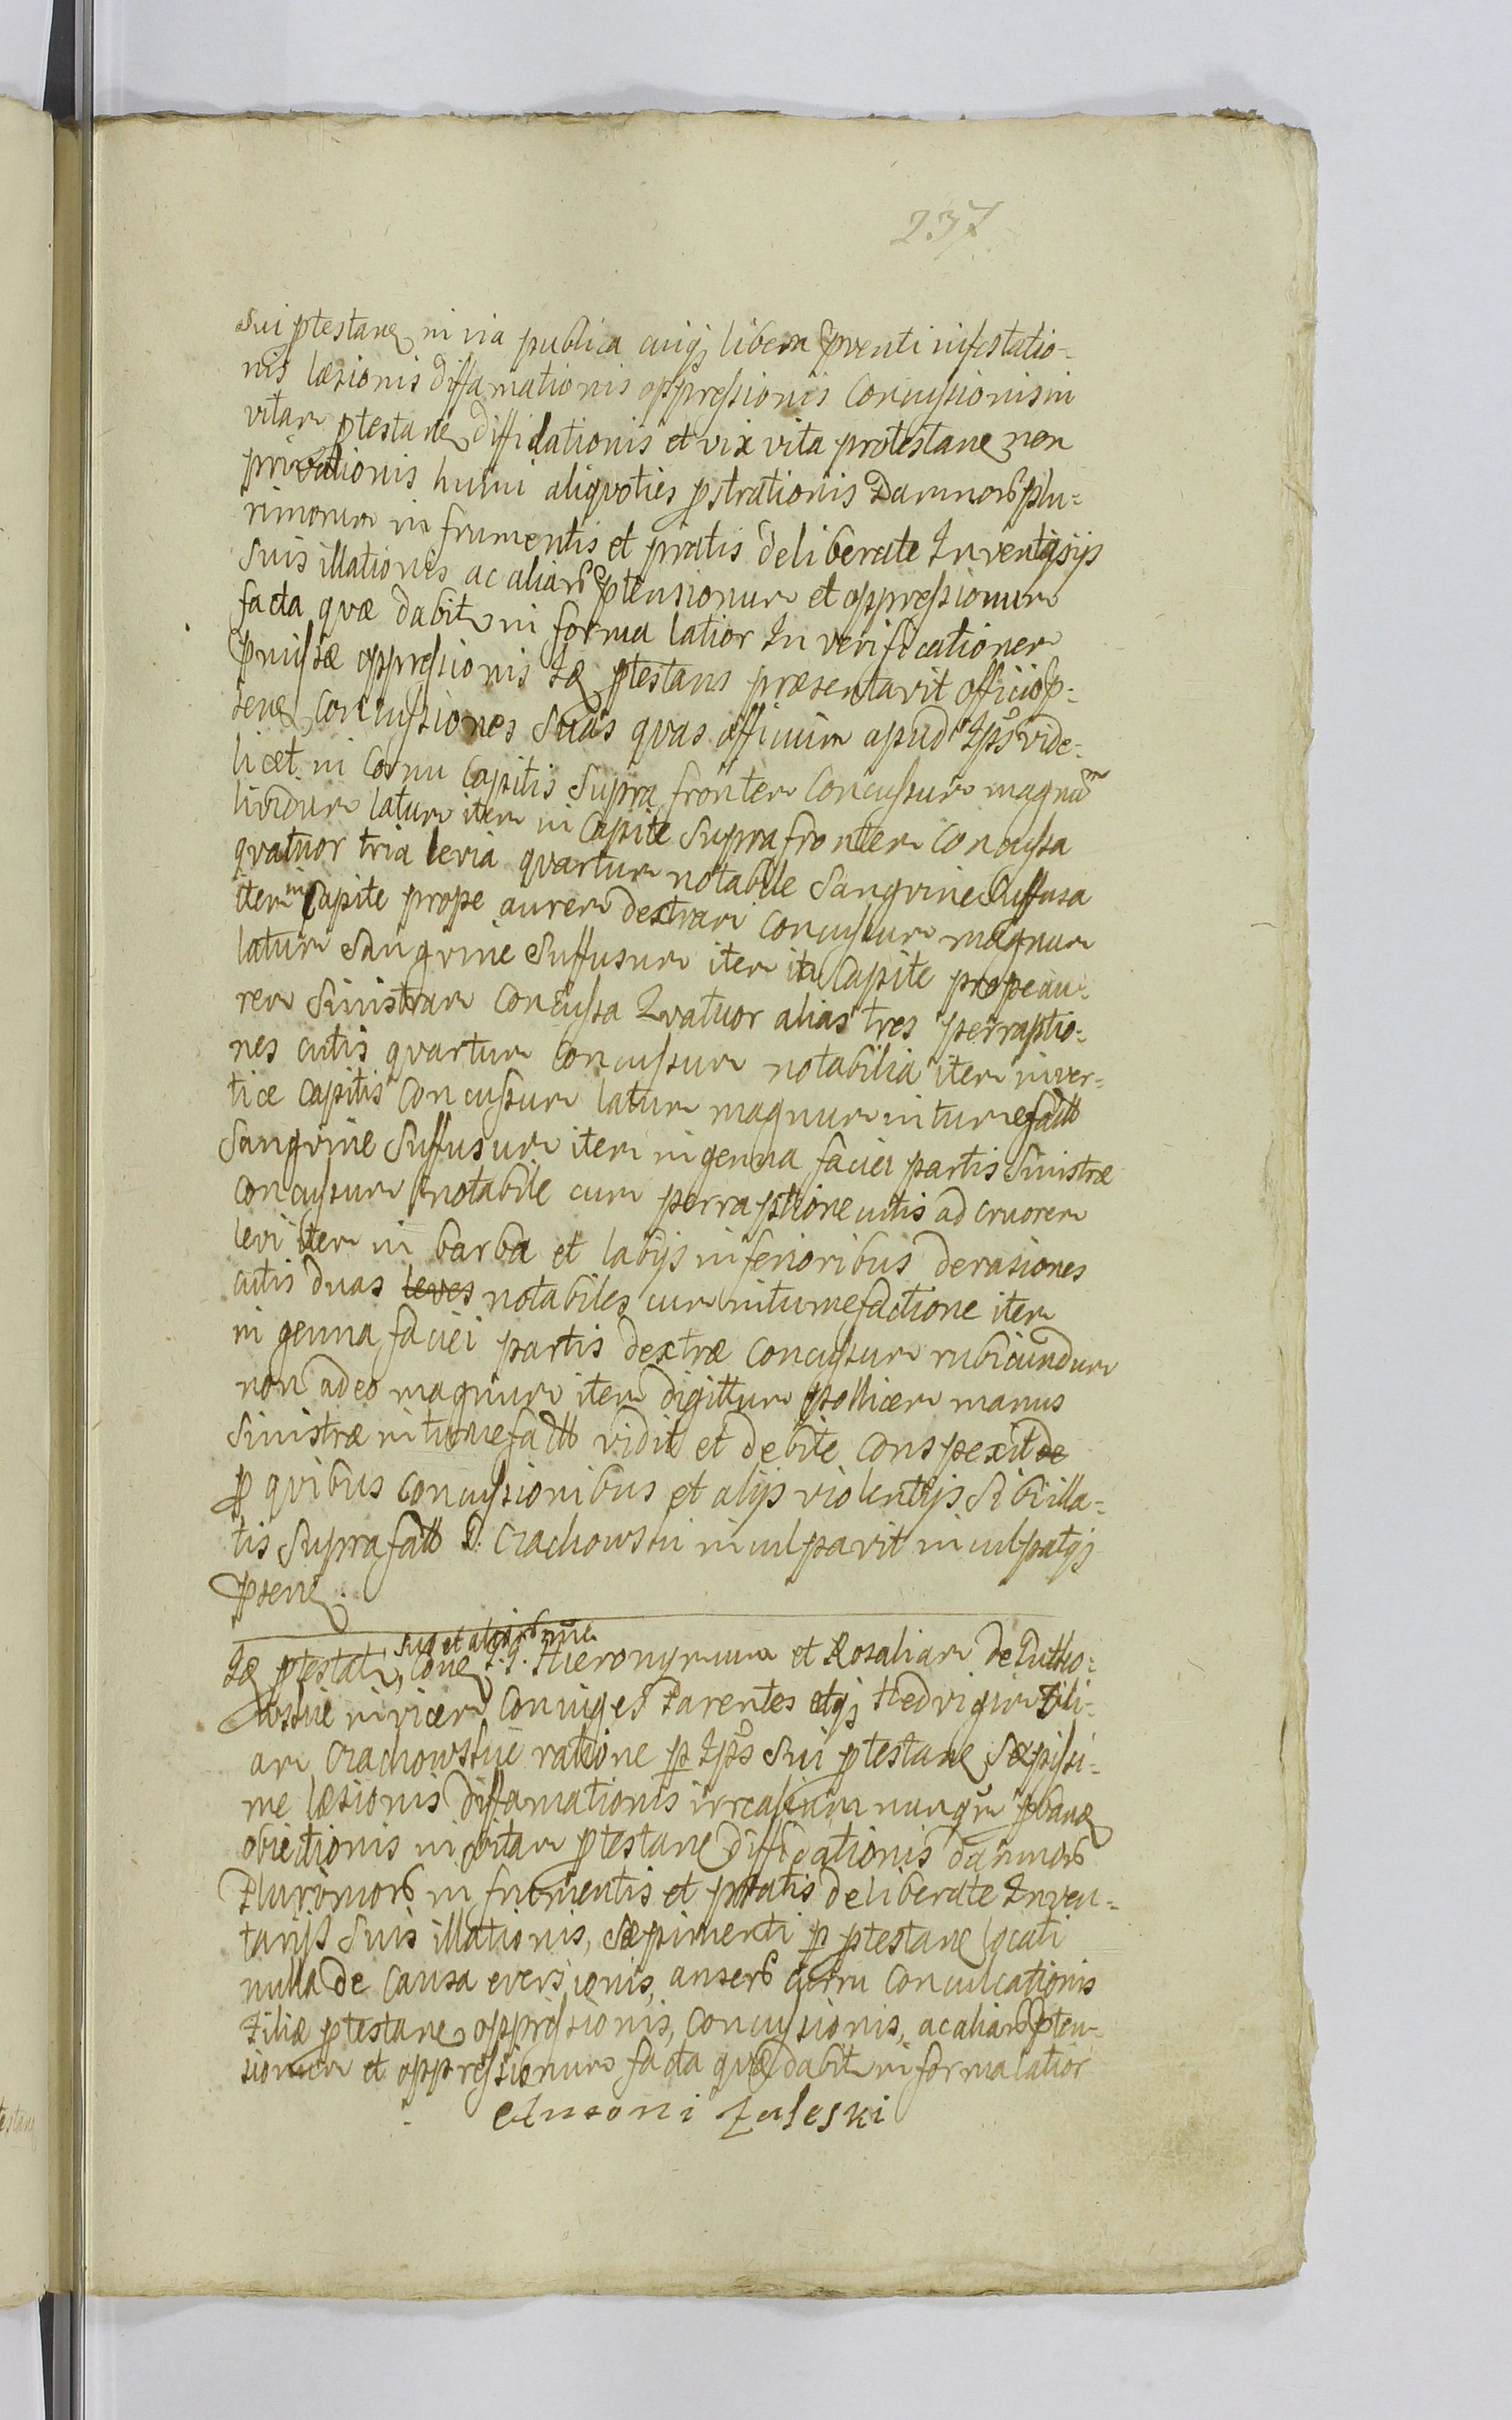 237
Sui ptestane in via publica cuiqz libera pventi infestatio-
nis læsionis diffamationis oppressionis Concussionis in
vitam ptestane diffidationis et vix vita protestane non
privationis humi aliqvoties pstrationis Damnorũ plu-
rimorum in frumentis et pratis deliberate Inventarijs
Suis illationis ac aliarũ ptensionum et oppressionum
facta qvæ dabit in forma latior In verificationem
pmissæ oppressionis Idẽ ptestans præsentavit officio p-
sen Concussiones Suas qvas officium apud Ipsũ vide-
licet in Cornu Capitis Supra frontem Concussum magnũ
lividum latum item in Capite Supra frontem Concussa
qvatuor tria levia qvartum notabile Sangvine Suffusa
item in Capite prope aurem dextram Concussum magnum
latum Sangvine Suffusum item in Capite prope au-
rem Sinistram Concussa Qvatuor alias tres perraptio-
nes cutis qvartum Concussum notabilia item in ver-
tice Capitis Concussum latum magnum intumefactũ
Sangvine Suffusum item in genna faciei partis Sinistræ
Concussum notabile cum perraptione cutis ad cruorem
levi item in barba et labijs inferioribus derasiones
cutis duas leves notabiles cum intumefactione item
in genna faciei partis dextræ Concussum rubicundum
non adeo magnum item digittum pollicem manus
Sinistræ intumefactũ vidit et debite conspexit de
p qvibus concussionibus et alijs violentijs Sibi illa-
tis Suprafatũ D. Crachowski inculpavit inculpatqz
psen
Idẽ ptestat Suo et aliorũ nne Cone G. G. Hieronymum et Rosaliam de Rutko-
wskie in vicem Coniuges Parentes atqz Hedvigim Fili-
am Crachowskie ratione p Ipsos Sui ptestane Sæpissi-
me læsionis diffamationis irrealium nunqm pbane
obiectionis in vitam ptestane diffidationis damnorũ
Plurimorũ in frumentis et pratis deliberate Inven-
tarijs Suis illationis, Sæpimenti p ptestane locati
nulla de causa eversionis, anserũ curru Conculcationis
Filiæ ptestane oppressionis, Concussionis, ac aliarũ pten-
sionum et oppressionum facta qvæ dabit in forma latior
Antoni Zaleski